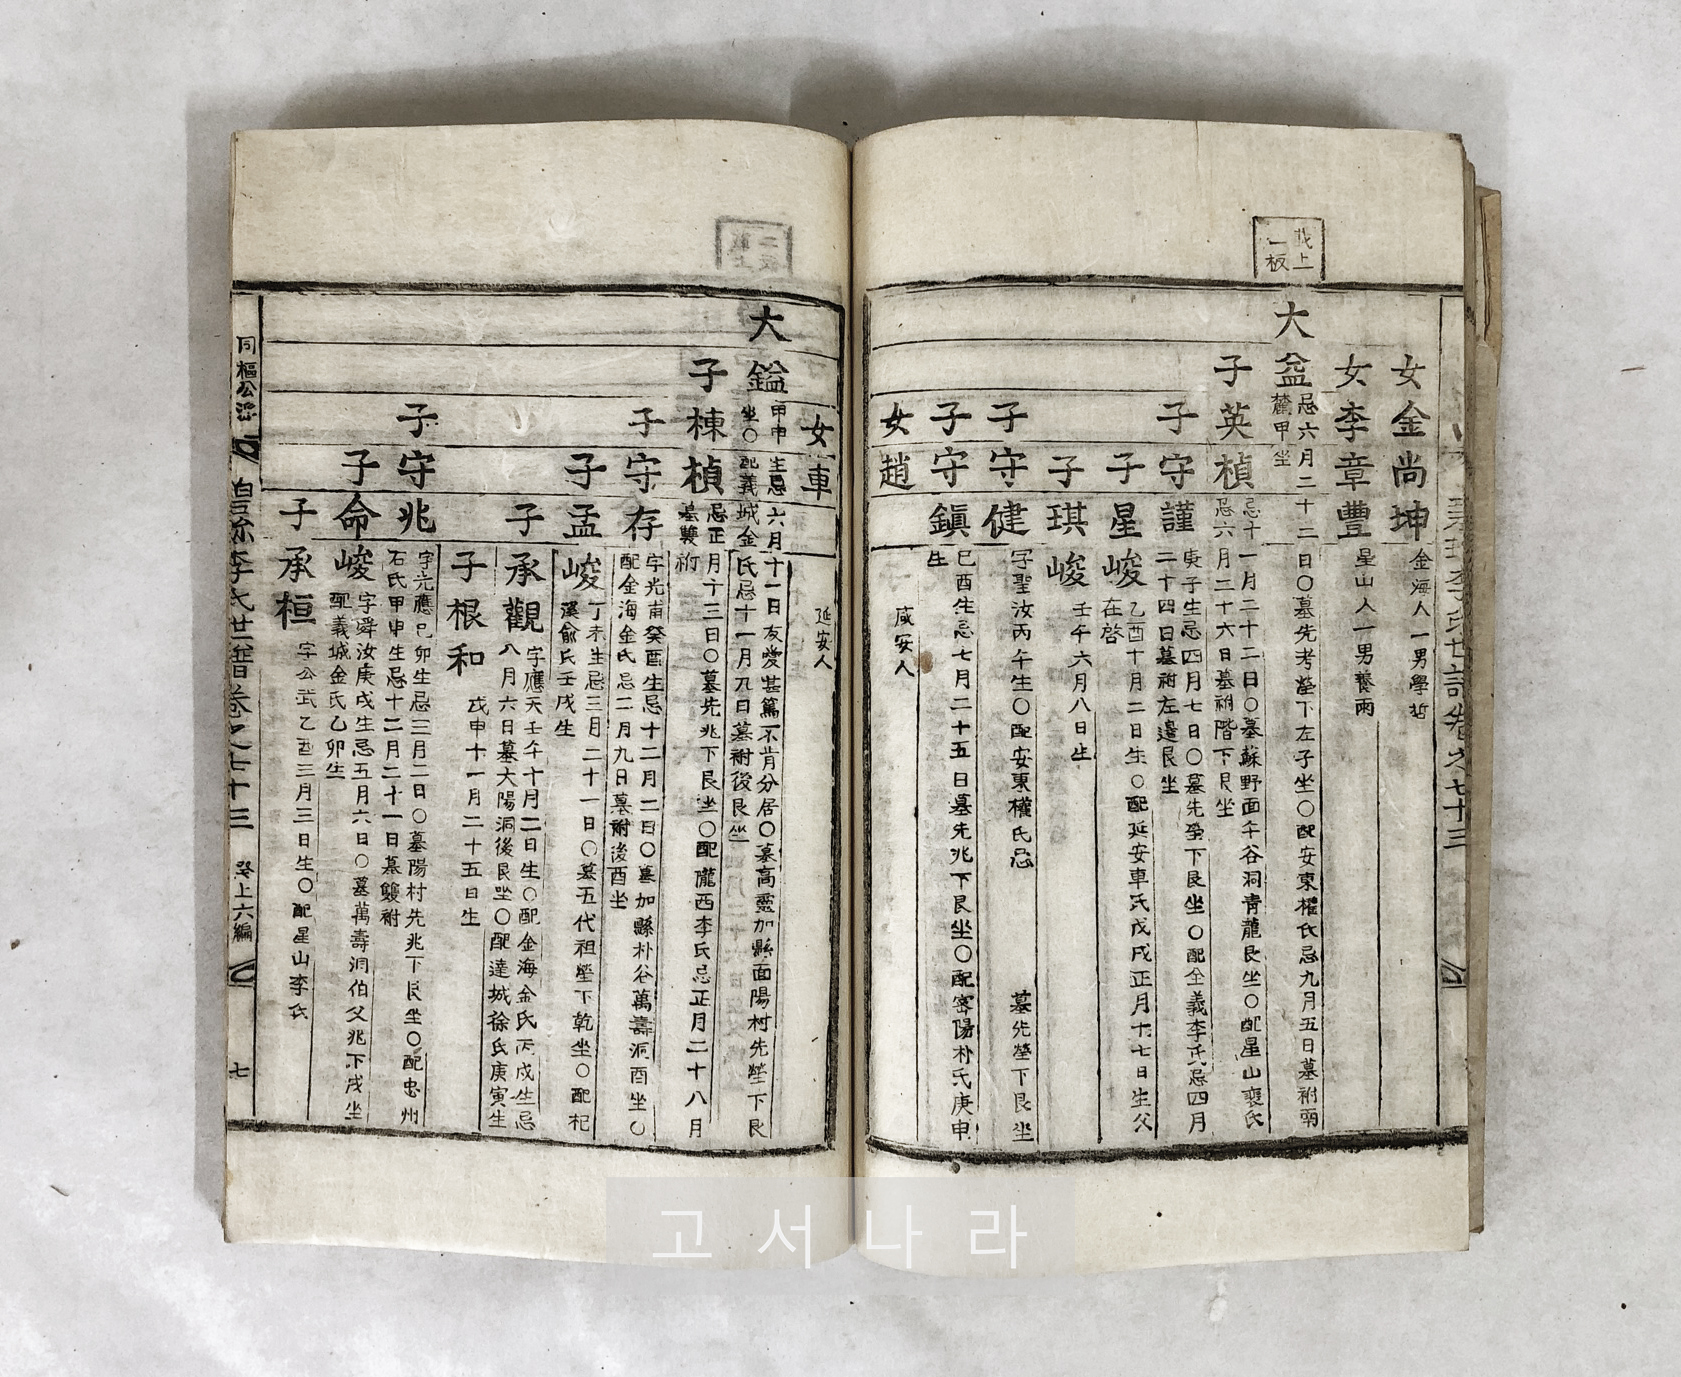 女金尚坤
金海人一男學哲
女李章豐
星山人一男養兩
大益
忌六月二十二日○墓先考塋下左子坐○配安東權氏忌九月五日墓祔
麓甲坐
子英楨
忌十一月二十二日○墓蘇野面午谷洞青龍艮坐○配星山裵氏
忌六月二十六日墓祔階下艮坐
子守謹
庚子生忌四月七日○墓先塋下艮坐○配全義李氏忌四月
二十四日墓祔左邊艮坐
子星峻
乙酉十月二日生○配延安車氏戊戌正月十七日生父
在啓
子琪峻
壬午六月八日生
子守健
字聖汝丙午生○配安東權氏忌
墓先塋下艮坐
子守鎭
己酉生忌七月二十五日墓先兆下艮坐○配密陽朴氏庚申
生
女趙
咸安人
女車
延安人
大鎰
甲申生忌六月十一日友愛甚篤不肯分居○墓高靈加縣面陽村先塋下艮
坐○配義城金氏忌十一月九日墓祔後艮坐
子棟楨
忌正月十三日○墓先兆下艮坐○配隴西李氏忌正月二十八月
墓雙祔
子守存
字光甫癸酉生忌十二月二日○墓加縣朴谷萬壽洞酉坐○
配金海金氏忌二月九日墓祔後酉坐
子孟峻
丁未生忌三月二十一日○墓五代祖塋下乾坐○配杞
溪兪氏壬戌生
子承觀
字應天壬午十月二日生○配金海金氏丙戌生忌
八月六日墓大陽洞後艮坐○配達城徐氏庚寅生
子根和
戊申十一月二十五日生
子守兆
字光應己卯生忌三月二日○墓陽村先兆下艮坐○配忠州
石氏甲申生忌十二月二十一日墓雙祔
子命峻
字舜汝庚戌生忌五月六日○墓萬壽洞伯父兆下戌坐
配義城金氏乙卯生
子承桓
字公武乙酉三月三日生○配星山李氏
同樞公派
李氏世譜卷之七十三
上六編
七
고서나라